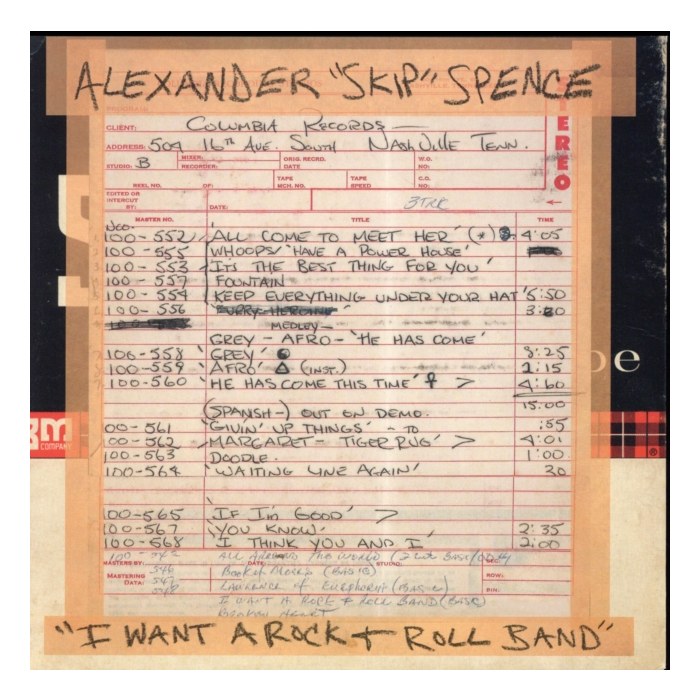 ALEXANDER "SKIP" SPENCE
CLIENT: COLUMBIA RECORDS
ADDRESS: 504 16TH AVE. SOUTH NASHVILLE TENN.
STUDIO: B MIXER: RECORDER: ORIG. RECRD. DATE W.O. NO:
REEL NO. OF: TAPE MCH. NO. TAPE SPEED C.O. NO:
EDITED OR INTERCUT BY: DATE: 3TRK
EREO
MASTER NO. TITLE TIME
NCO.
100-552 'ALL COME TO MEET HER' (*) 4:05
100-555 WHOOPS/'HAVE A POWER HOUSE'
100-553 IT'S THE BEST THING FOR YOU'
100-557 FOUNTAIN
100-554 KEEP EVERYTHING UNDER YOUR HAT' 5:50
100-556
MEDLEY-
GREY - AFRO - 'HE HAS COME'
100-558 'GREY' 8:25
100-559 'AFRO' Δ (INST.) 2:15
100-560 'HE HAS COME THIS TIME' ☥ > 4:60
15:00
(SPANISH-) OUT ON DEMO.
00-561 'GIVIN' UP THINGS' - TO :55
00-562 'MARGARET - TIGER RUG' > 4:01
100-563 DOODLE. 1:00
100-564 'WAITING LINE AGAIN' 20
100-565 'IF I'M GOOD' >
100-567 'YOU KNOW' 2:35
100-568 'I THINK YOU AND I' 2:00
MASTERED BY: DATE: STUDIO:
546
MASTERING DATA: 547 ROW:
PIN:
I WANT A ROCK & ROLL BAND
COMPANY
"I WANT A ROCK + ROLL BAND"